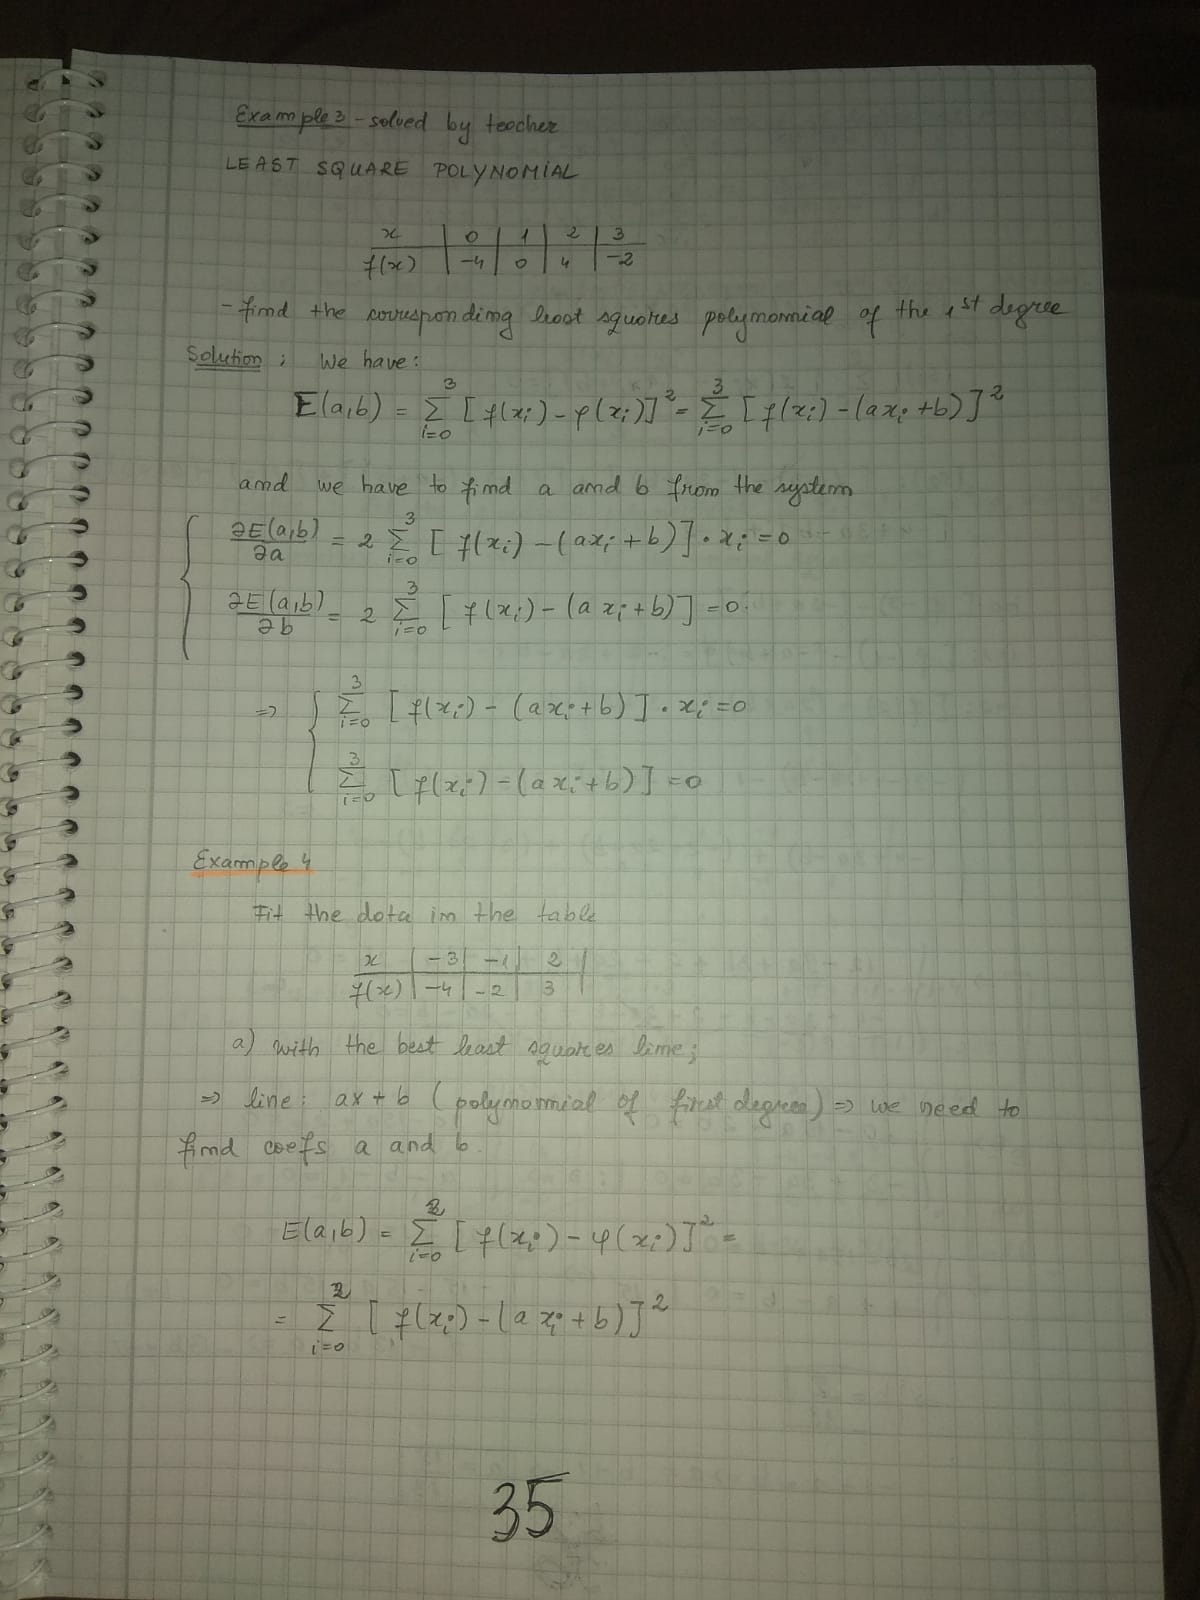 Example 3 - solved by teacher
LEAST SQUARE POLYNOMIAL
x | 0 | 1 | 2 | 3
f(x) | -4 | 0 | 4 | -2
- find the corresponding least squares polynomial of the 1st degree
Solution : We have:
E(a,b) = Σ_{i=0}^{3} [f(x_i) - φ(x_i)]^2 = Σ_{i=0}^{3} [f(x_i) - (ax_i + b)]^2
and we have to find a and b from the system
{ ∂E(a,b)/∂a = 2 Σ_{i=0}^{3} [f(x_i) - (ax_i + b)] · x_i = 0
∂E(a,b)/∂b = 2 Σ_{i=0}^{3} [f(x_i) - (ax_i + b)] = 0.
⇒ { Σ_{i=0}^{3} [f(x_i) - (ax_i + b)] · x_i = 0
Σ_{i=0}^{3} [f(x_i) - (ax_i + b)] = 0
Example 4
Fit the data in the table
x | -3 | -1 | 2 |
f(x) | -4 | -2 | 3 |
a) with the best least squares line;
⇒ line: ax + b (polynomial of first degree) ⇒ we need to
find coefs a and b.
E(a,b) = Σ_{i=0}^{2} [f(x_i) - φ(x_i)]^2 =
= Σ_{i=0}^{2} [f(x_i) - (ax_i + b)]^2
35